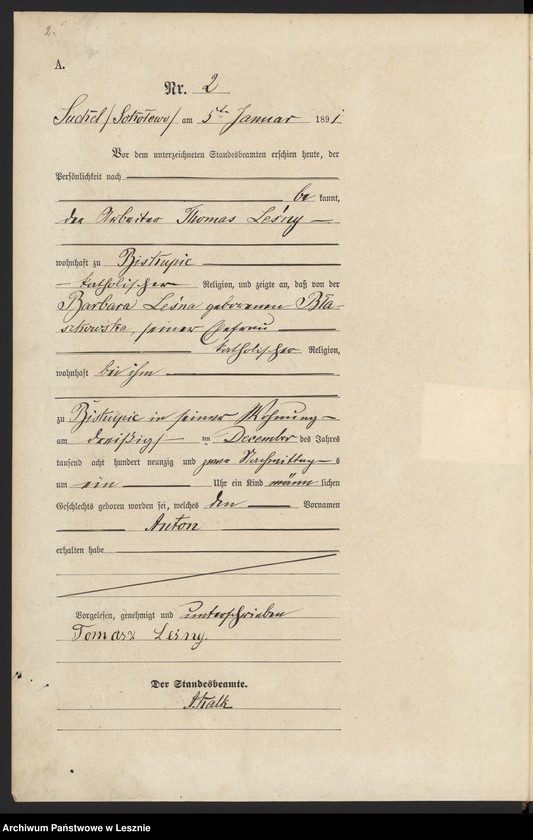 2.
A.
Nr. 2
Suchel /Sokołowo/ am 5ten Januar 1891
Vor dem unterzeichneten Standesbeamten erschien heute, der
Persönlichkeit nach
bekannt,
der Arbeiter Thomas Leśny
wohnhaft zu Biskupic
katholischer Religion, und zeigte an, daß von der
Barbara Leśna geborenen Bła-
szkowska, seiner Ehefrau
katholischer Religion,
wohnhaft bei ihm
zu Biskupic in seiner Wohnung
am dreißigst ten December des Jahres
tausend acht hundert neunzig und zwar Nachmittags
um ein Uhr ein Kind männlichen
Geschlechts geboren worden sei, welches den Vornamen
Anton
erhalten habe
Vorgelesen, genehmigt und unterschrieben
Tomasz Leśny.
Der Standesbeamte.
Archiwum Państwowe w Lesznie